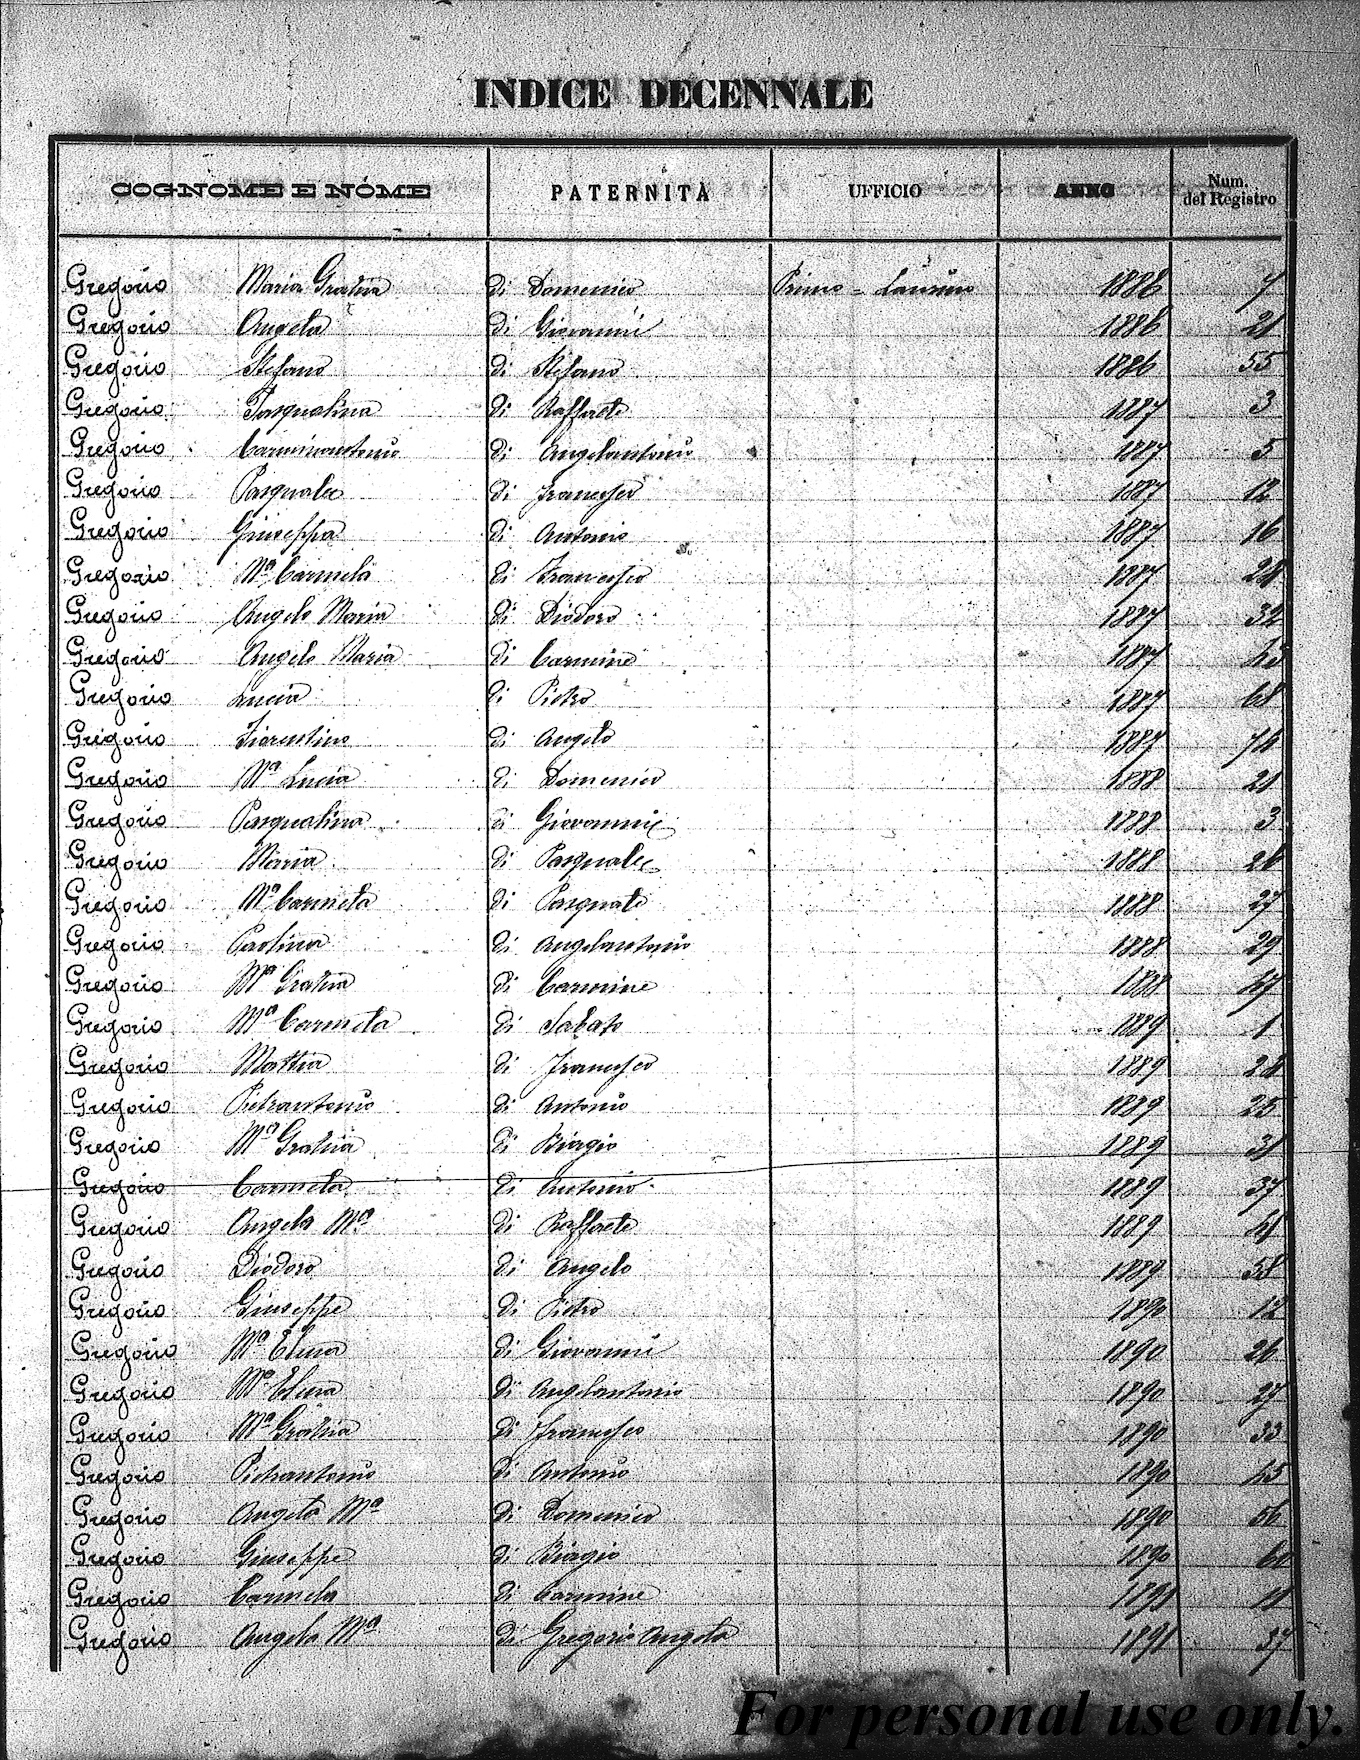 INDICE DECENNALE
COGNOME E NOME PATERNITÀ UFFICIO ANNO Num. del Registro
Gregorio Maria Grazia di Domenico Primo = 1886 7
Gregorio Angela di Giovanni 1886 21
Gregorio Stefano di Stefano 1886 55
Gregorio Pasqualina di Raffaele 1887 3
Gregorio Carminantonio di Angelantonio 1887 5
Gregorio Pasquale di Francesco 1887 12
Gregorio Giuseppa di Antonio 1887 16
Gregorio Mª Carmela di Francesco 1887
Gregorio Angelo Maria di Diodoro 1887 32
Gregorio Angelo Maria di Carmine 1887
Gregorio Lucia di Pietro 1887 68
Gregorio Fiorentino di Angelo 1887 74
Gregorio Mª Lucia di Domenico 1888 21
Gregorio Pasqualina di Giovanni 1888 3
Gregorio Maria di Pasquale 1888 26
Gregorio Mª Carmela di Pasquale 1888 27
Gregorio Paolina di Angelantonio 1888 29
Gregorio Mª Grazia di Carmine 1888 47
Gregorio Mª Carmela di Sabato 1889 1
Gregorio Mattia di Francesco 1889 24
Gregorio Pietrantonio di Antonio 1889 25
Gregorio Mª Grazia di Biagio 1889 31
Gregorio Carmela di Antonio 1889 37
Gregorio Angela Mª di Raffaele 1889 41
Gregorio Diodoro di Angelo 1889 58
Gregorio Giuseppe di Pietro 1890 12
Gregorio Mª Elena di Giovanni 1890 26
Gregorio Mª Elena di Angelantonio 1890 27
Gregorio Mª Grazia di Francesco 1890 33
Gregorio Pietrantonio di Antonio 1890 45
Gregorio Angela Mª di Domenico 1890 56
Gregorio Giuseppe di Biagio 1890 60
Gregorio Carmela di Carmine 1891
Gregorio Angela Mª di Gregorio Angela 1891 37
For personal use only.